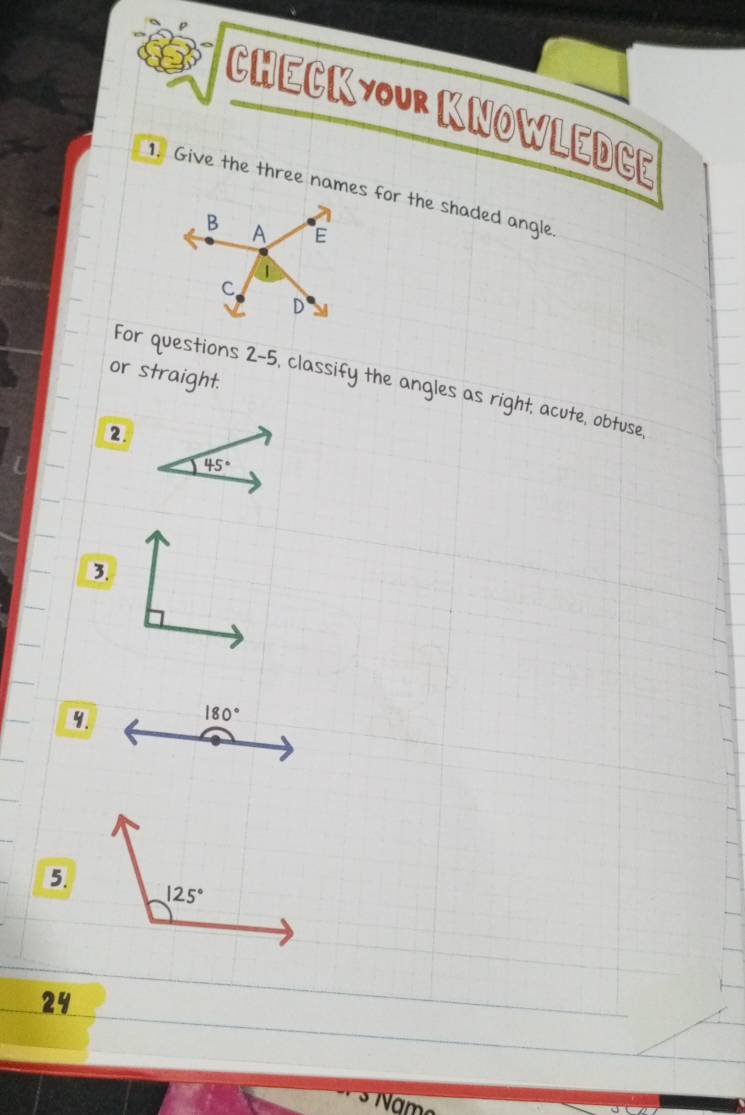 CHECK YOUR KNOWLEDGE
1. Give the three names for the shaded angle.
B
A
E
1
C
D
For questions 2-5, classify the angles as right, acute, obtuse,
or straight.
2.
45°
3.
4.
180°
5.
125°
24
Nam